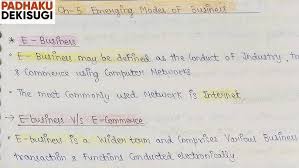 PADHAKU
DEKISUGI
Ch-5 Emerging Modes of Business
* E - Business
E - Business may be defined as the conduct of Industry, tr
& Commerce using Computer Networks.
The most commonly used Network is Internet.
→ E-business V/s E-Commerce
E-business is a Widen term and Comprises Various Business
transaction & Functions Conducted electronically.